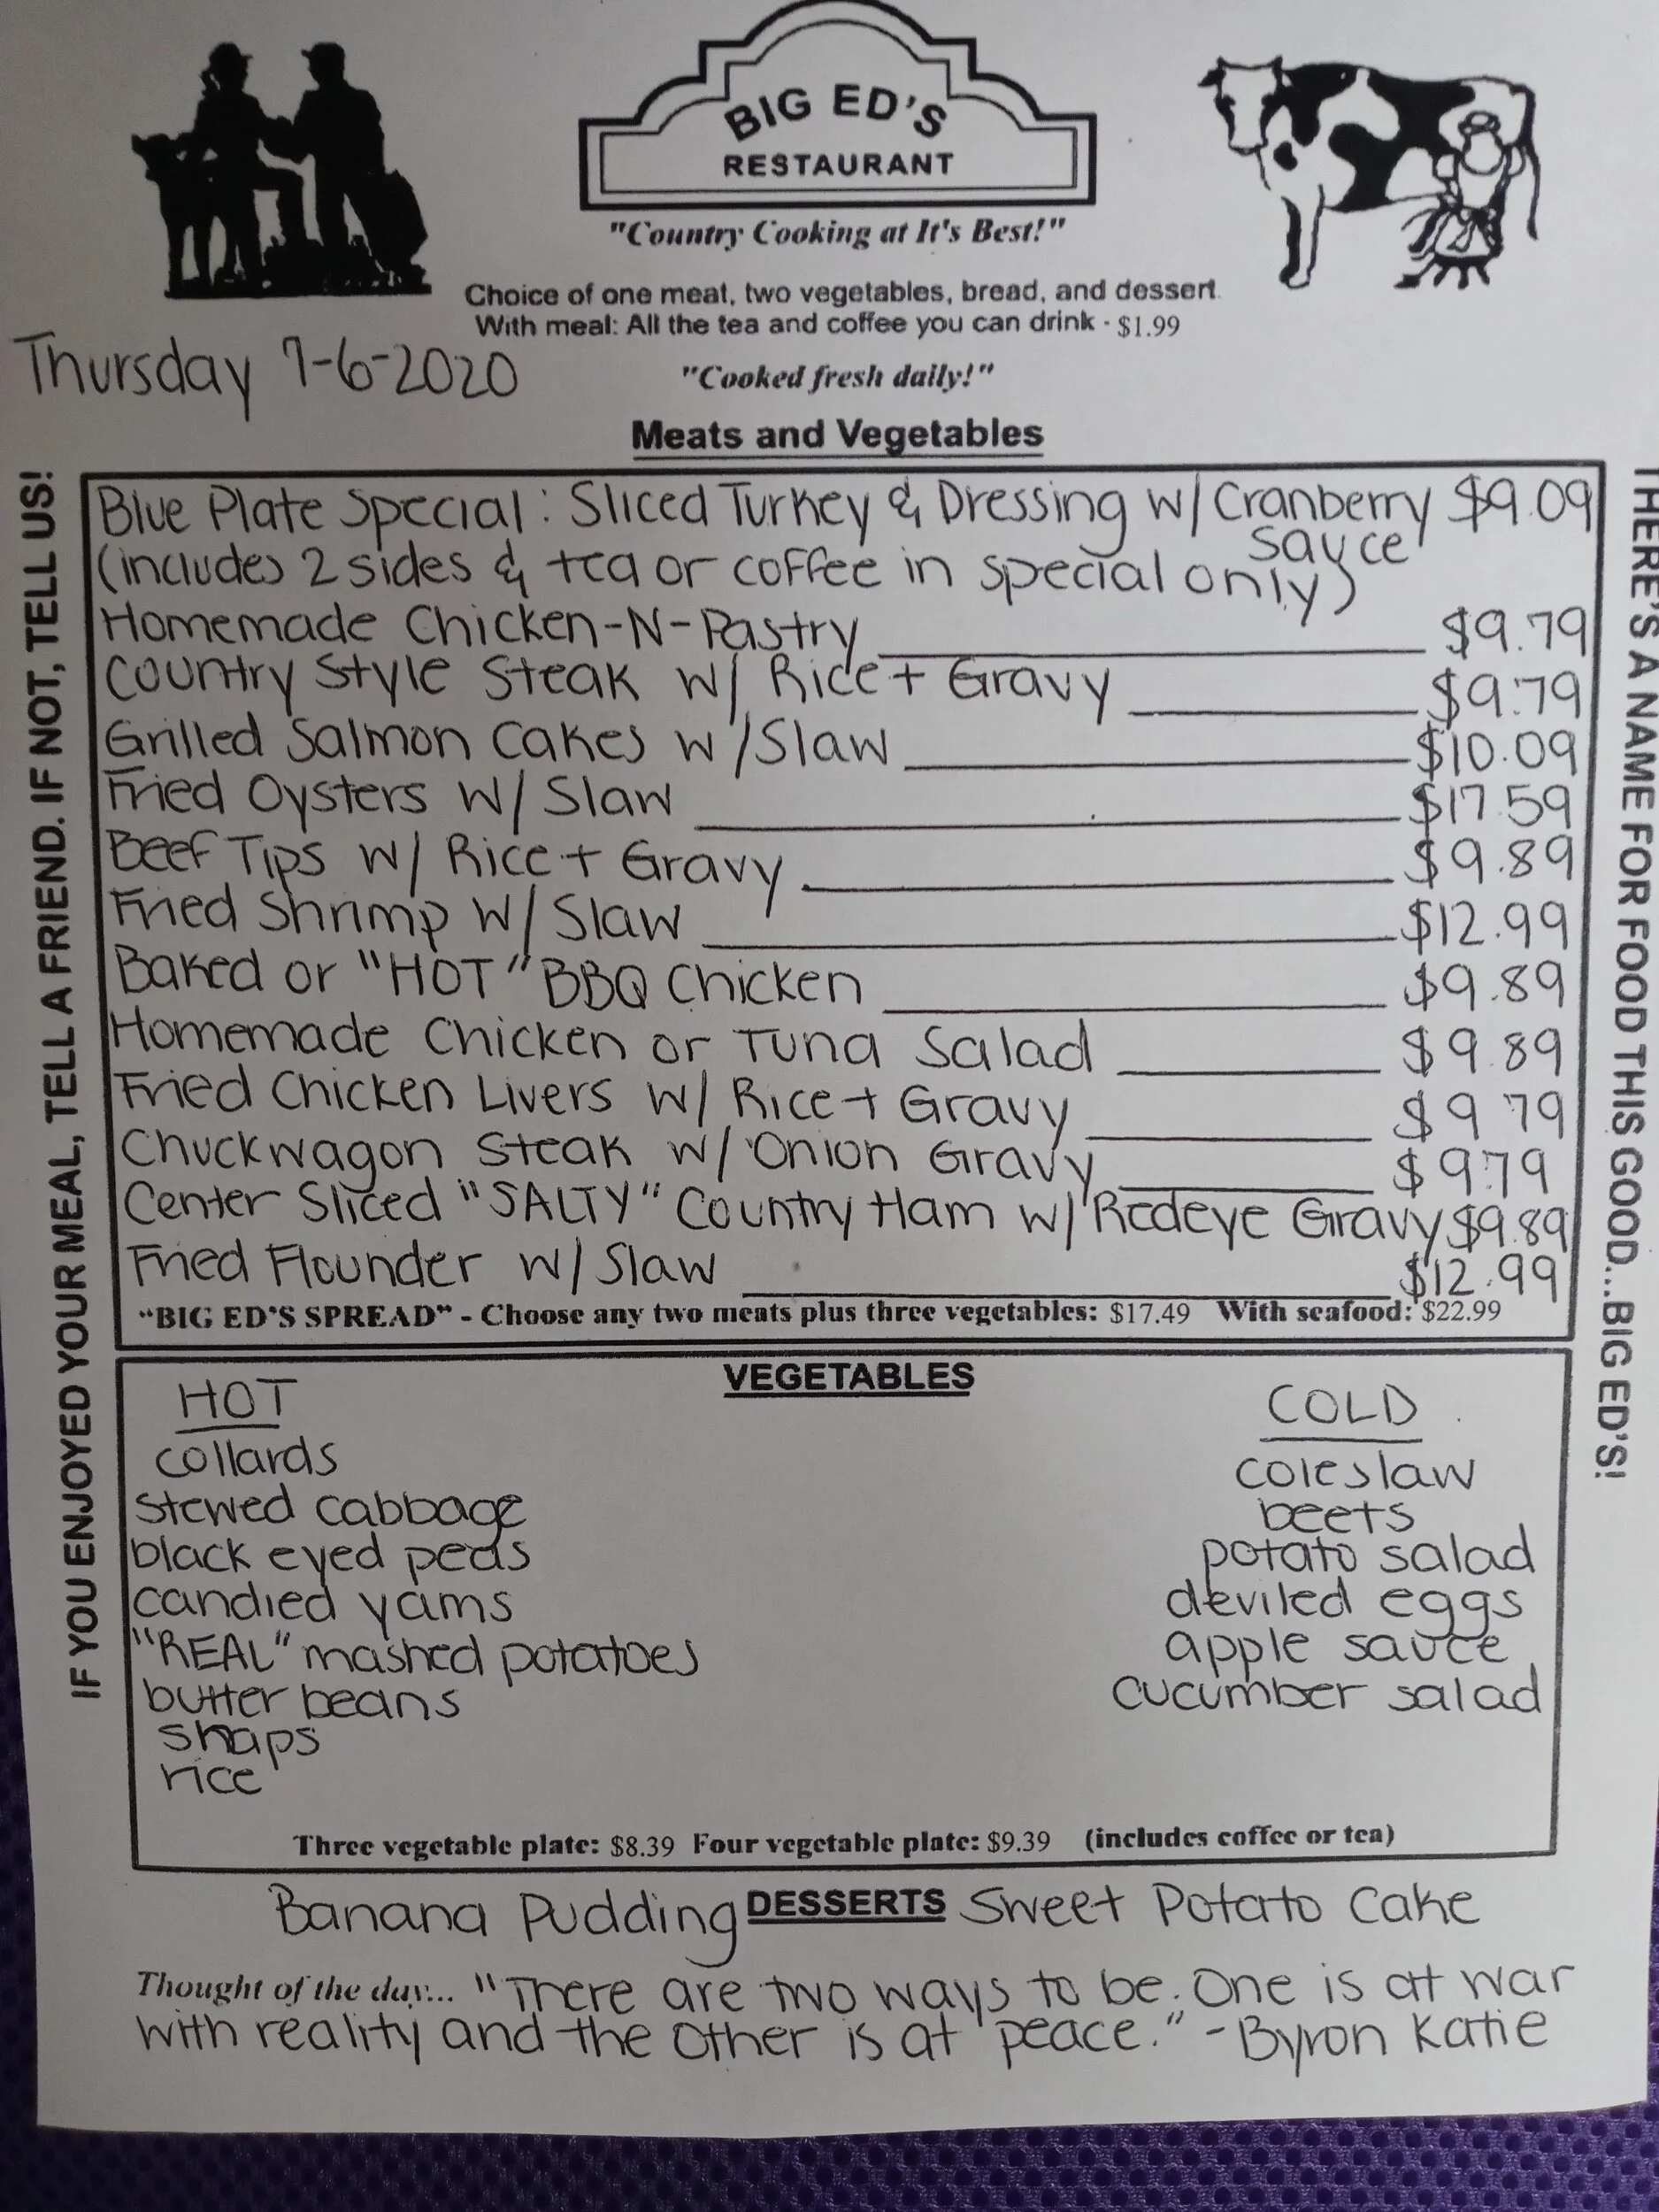 BIG ED'S
RESTAURANT
"Country Cooking at It's Best!"
Choice of one meat, two vegetables, bread, and dessert.
With meal: All the tea and coffee you can drink - $1.99
Thursday 7-6-2020
"Cooked fresh daily!"
Meats and Vegetables
IF YOU ENJOYED YOUR MEAL, TELL A FRIEND. IF NOT, TELL US!
THERE'S A NAME FOR FOOD THIS GOOD...BIG ED'S!
Blue Plate Special: Sliced Turkey & Dressing w/ Cranberry Sauce $9.09
(includes 2 sides & tea or coffee in special only)
Homemade Chicken-N-Pastry $9.79
Country Style Steak w/ Rice + Gravy $9.79
Grilled Salmon Cakes w/Slaw $10.09
Fried Oysters w/ Slaw $17.59
Beef Tips w/ Rice + Gravy $9.89
Fried Shrimp w/ Slaw $12.99
Baked or "HOT" BBQ Chicken $9.89
Homemade Chicken or Tuna Salad $9.89
Fried Chicken Livers w/ Rice + Gravy $9.79
Chuckwagon Steak w/ Onion Gravy $9.79
Center Sliced "SALTY" Country Ham w/ Redeye Gravy $9.89
Fried Flounder w/ Slaw $12.99
"BIG ED'S SPREAD" - Choose any two meats plus three vegetables: $17.49 With seafood: $22.99
VEGETABLES
HOT
collards
stewed cabbage
black eyed peas
candied yams
"REAL" mashed potatoes
butter beans
snaps
rice
COLD
coleslaw
beets
potato salad
deviled eggs
apple sauce
cucumber salad
Three vegetable plate: $8.39 Four vegetable plate: $9.39 (includes coffee or tea)
Banana Pudding DESSERTS Sweet Potato Cake
Thought of the day... "There are two ways to be. One is at war
with reality and the other is at peace." - Byron Katie